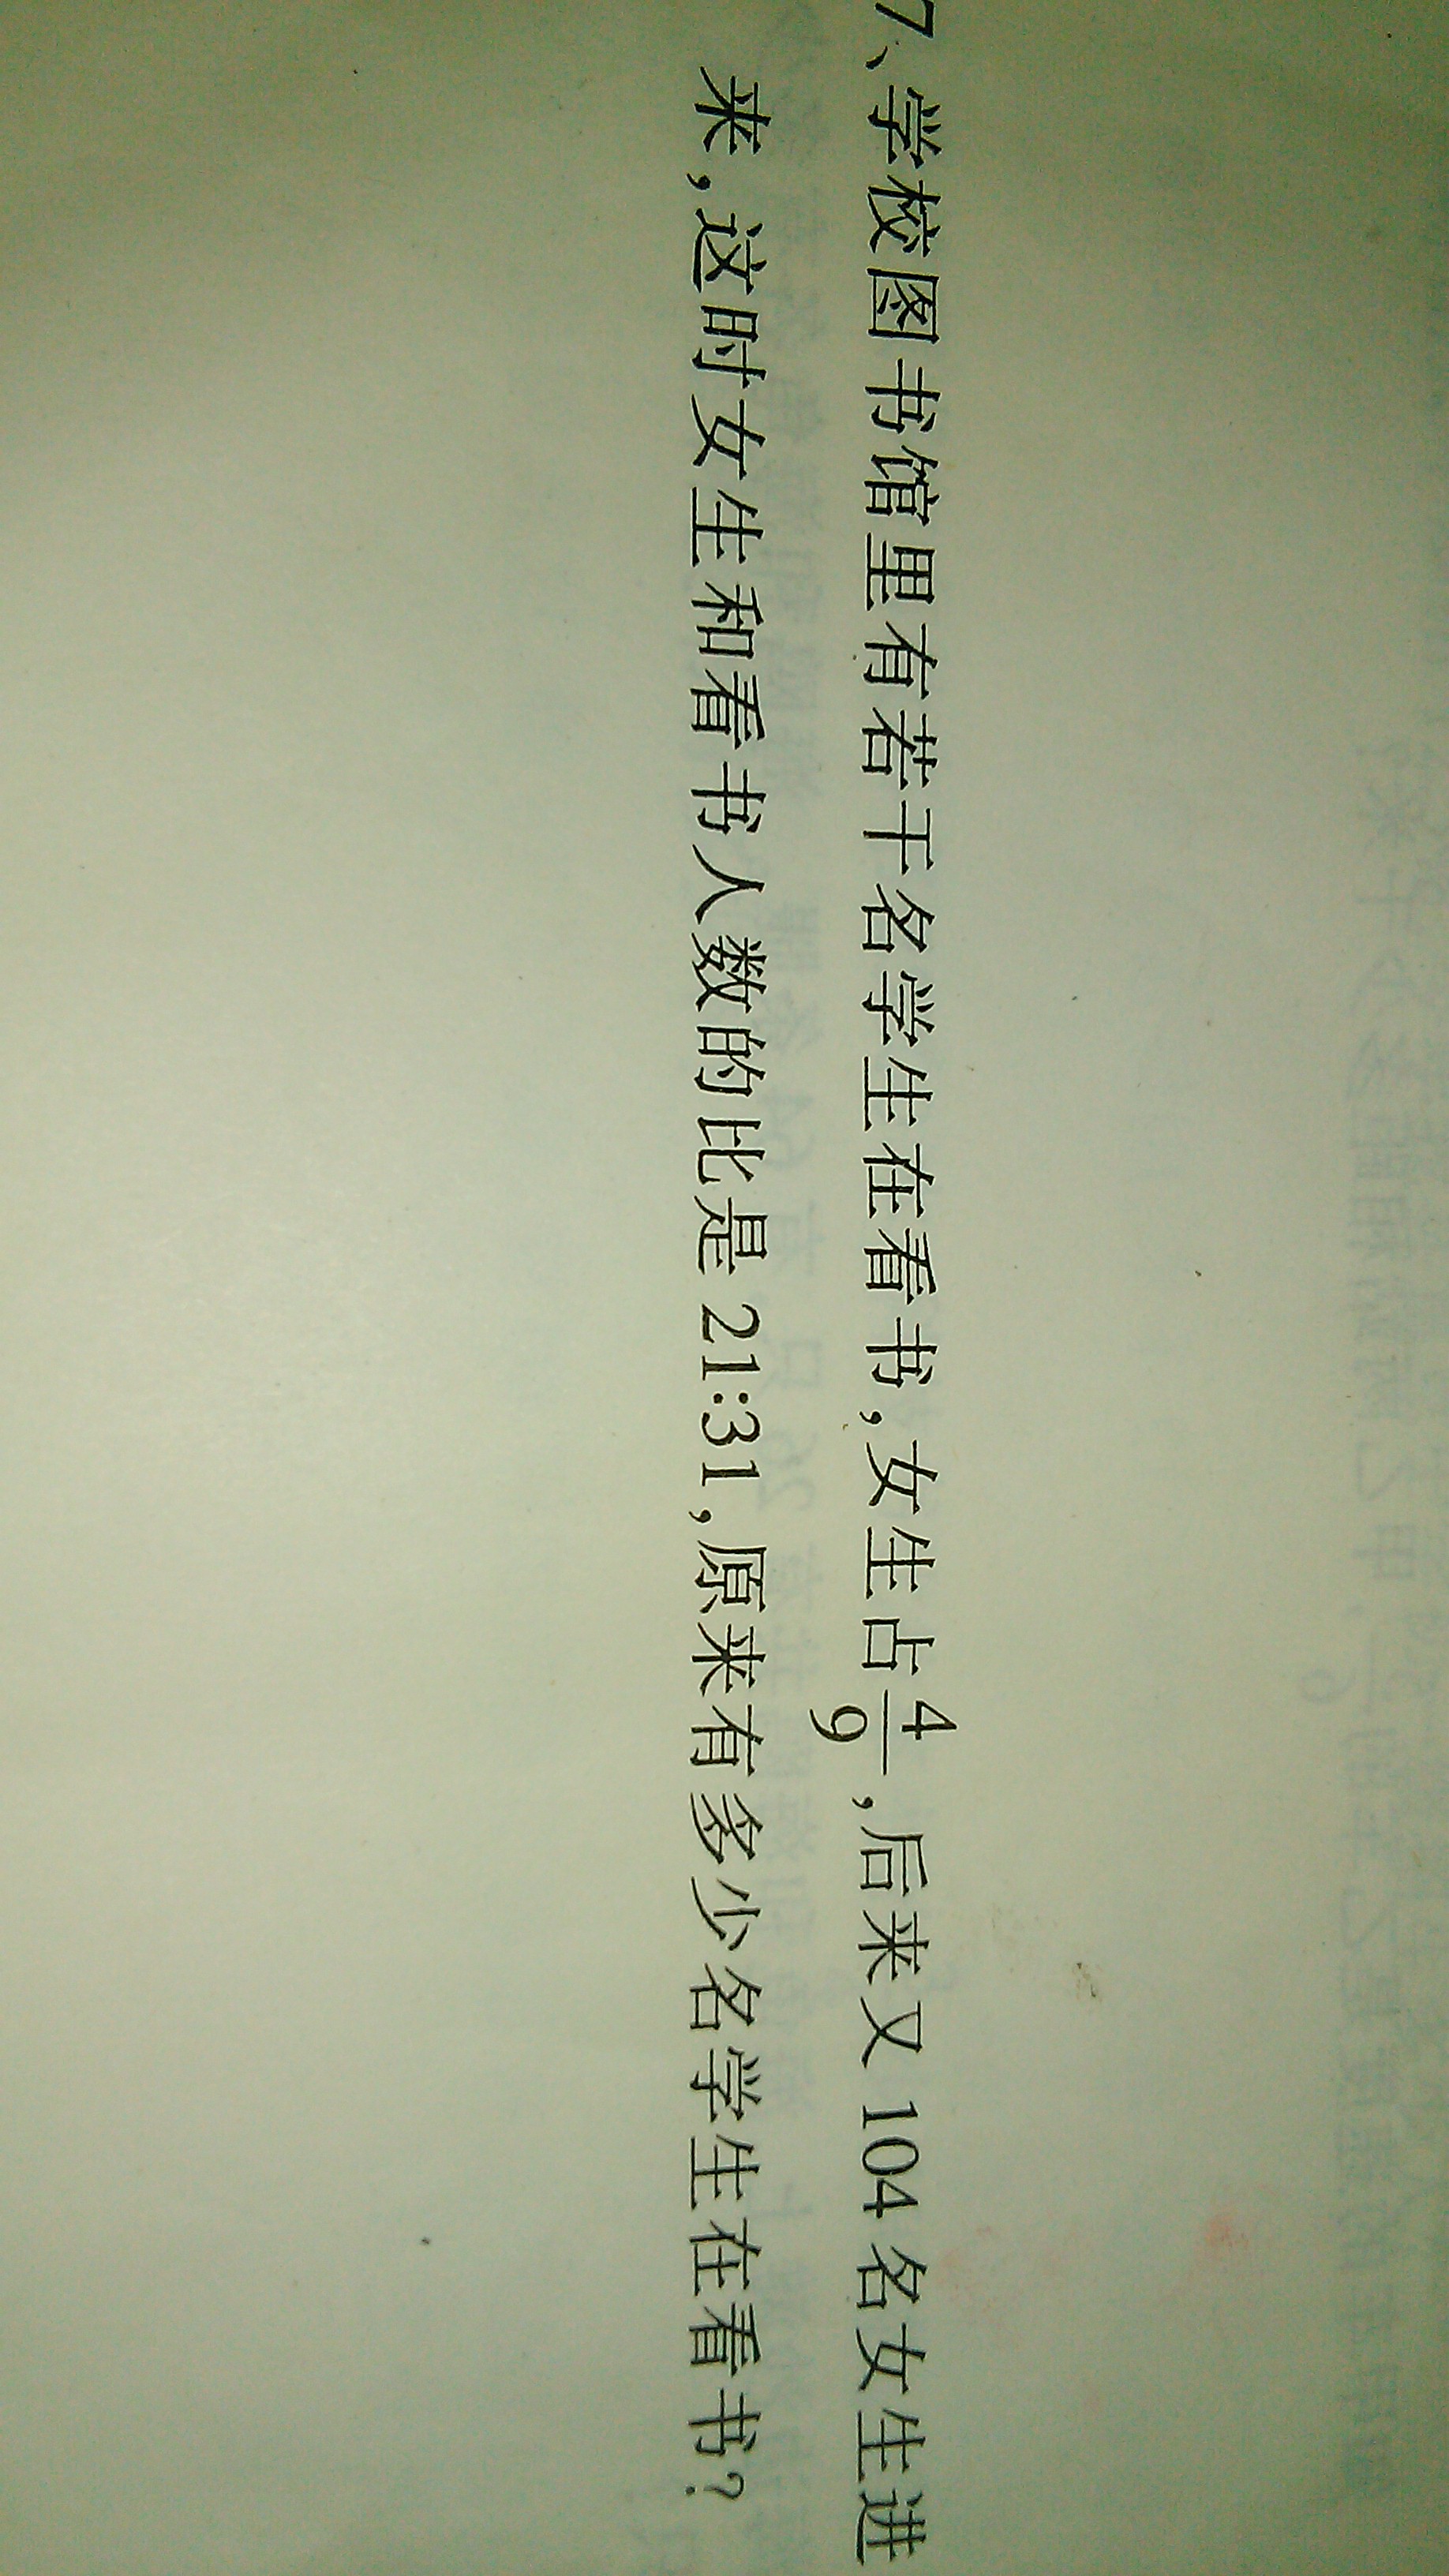 7、学校图书馆里有若干名学生在看书,女生占4/9,后来又104名女生进
来,这时女生和看书人数的比是21:31,原来有多少名学生在看书?